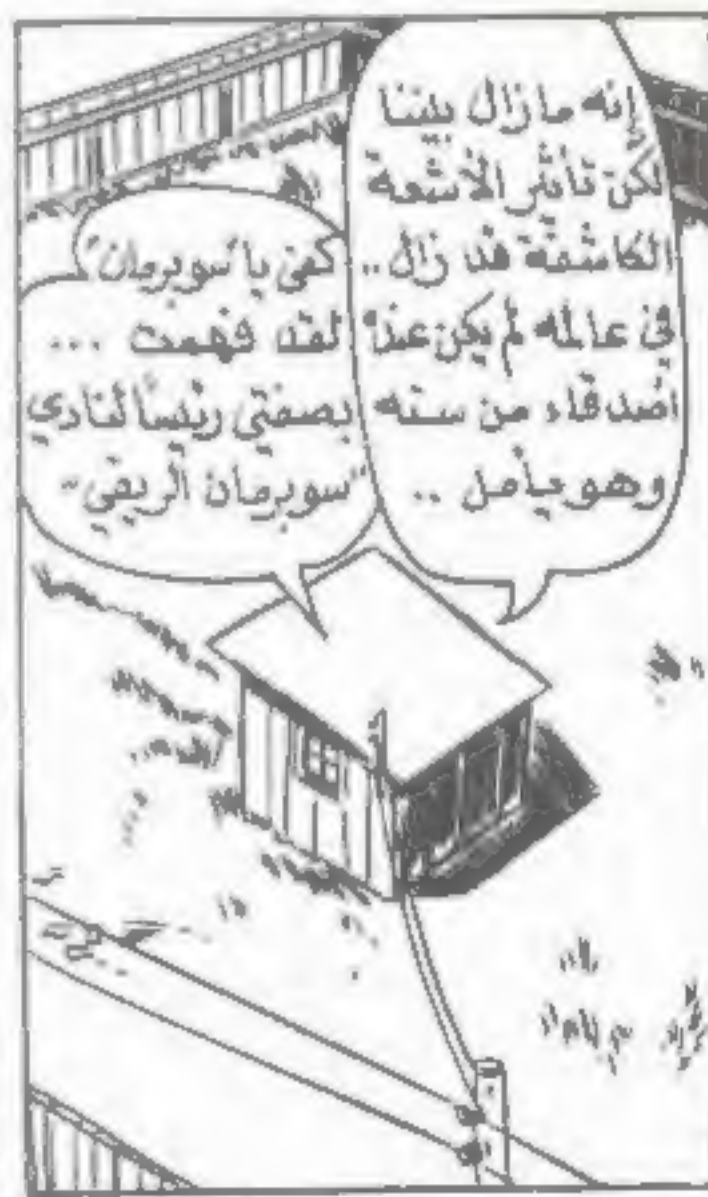 إنه مازال بيننا
لكن تأثير الأشعة
الكاشفة قد زال..
في عالمه لم يكن عنده
أصدقاء من سنه
وهو يأمل ..
كفى يا "سوبرمان"
لقد فهمت ...
بصفتي رئيسًا لنادي
"سوبرمان الريفي"